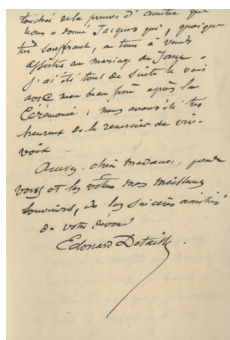 touchés de la preuve d'amitié que
nous a donné Jacques qui, quoique
très souffrant, a tenu à venir
assister au mariage de
J'ai été tout de suite le voir
avec mon beau frère après la
Cérémonie ; nous avons été très
heureux de le remercier de vive
voix
chère madame, pour
vous et les vôtres mes meilleurs
souvenirs, et les sincères amitiés
de votre dévoué
Edouard Detaille